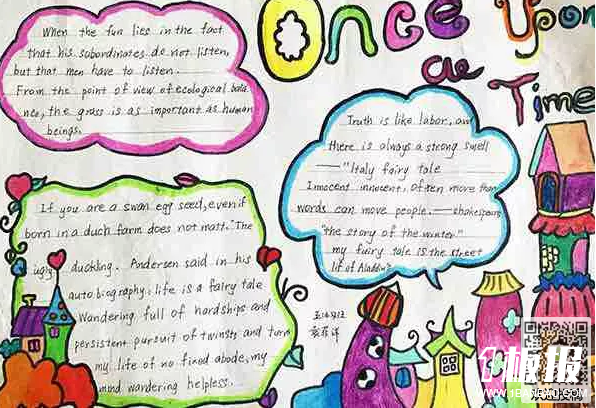 Once Upon
a
Time
When the fun lies in the fact
that his subordinates do not listen,
but that men have to listen.
From the point of view of ecological bala
nce, the grass is as important as human
beings.
Truth is like labor, and
there is always a strong smell
—"Italy fairy tale
Innocent innocent, Often more than
words can move people.——shakespeare
"the story of the winter."
my fairy tale is the street
lif of Aladdin"
If you are a swan egg seed, even if
born in a duch farm does not matt. "The
ugly duckling. Andersen said in his
autobiography, life is a fairy tale
Wandering, full of hardships and
persistent pursuit of twinsts and turn
my life of no fixed abode, my
mind wandering helpless.
1板报
WWW.1BANBAO.COM